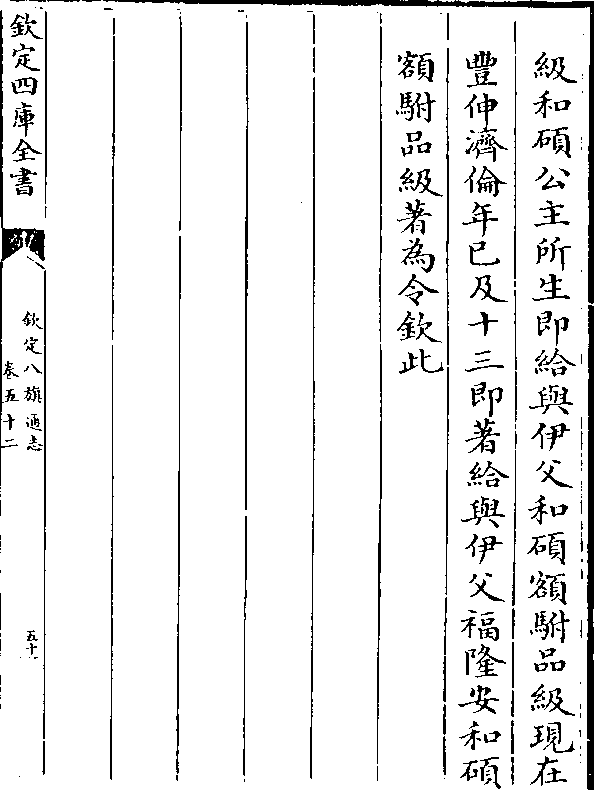 級和碩公主所生即給與伊父和碩額駙品級現在
豐伸濟倫年已及十三即著給與伊父福隆安和碩
額駙品級著為令欽此
欽定四庫全書
欽定八旗通志
卷五十二
五十一